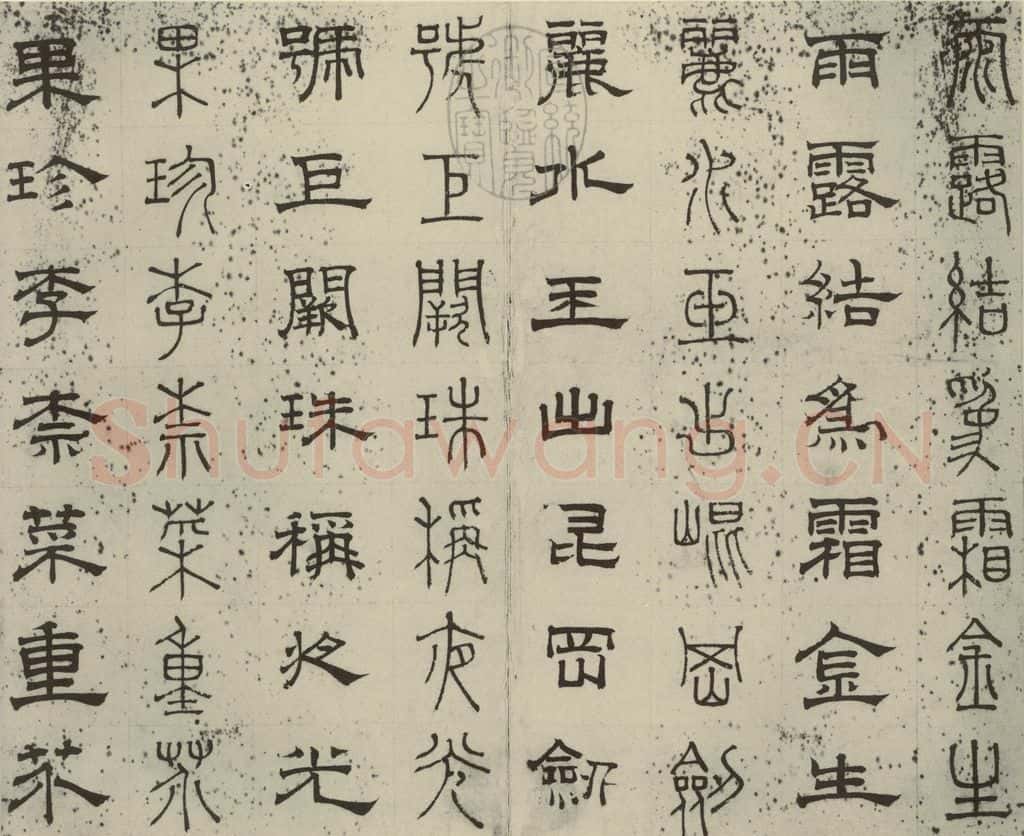 雨露結爲霜金生
雨露結爲霜金生
麗水玉出崐岡劒
麗水玉出昆岡劒
號巨闕珠稱夜光
號巨闕珠稱夜光
果珍李柰菜重芥
果珍李柰菜重芥
Shufawang.CN